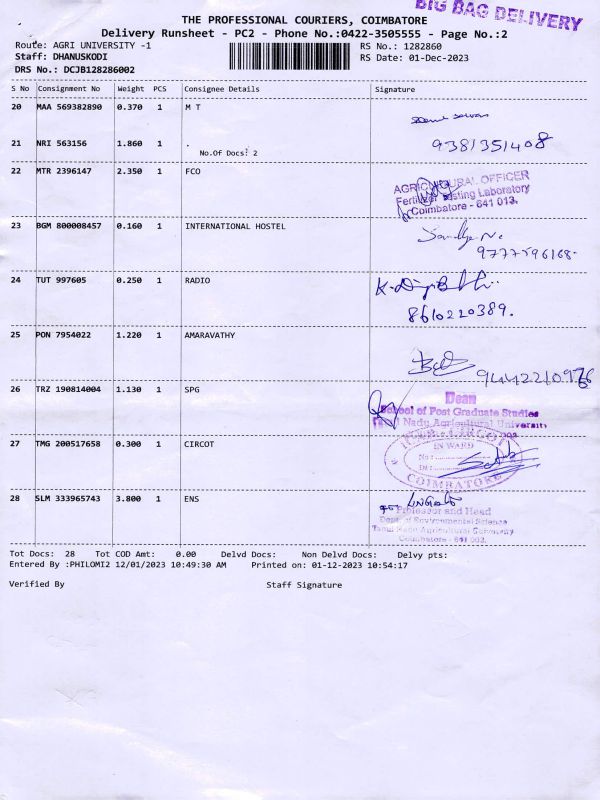 BIG BAG DELIVERY
THE PROFESSIONAL COURIERS, COIMBATORE
Delivery Runsheet - PC2 - Phone No.:0422-3505555 - Page No.:2
Route: AGRI UNIVERSITY -1 RS No.: 1282860
Staff: DHANUSKODI RS Date: 01-Dec-2023
DRS No.: DCJB128286002
S No Consignment No Weight PCS Consignee Details Signature
20 MAA 569382890 0.370 1 M T
21 NRI 563156 1.860 1 . 9381351408
No.Of Docs: 2
22 MTR 2396147 2.350 1 FCO
AGRICULTURAL OFFICER
Fertilizer Testing Laboratory
Coimbatore - 641 013.
23 BGM 800008457 0.160 1 INTERNATIONAL HOSTEL
9777596168.
24 TUT 997605 0.250 1 RADIO
8610220389.
25 PON 7954022 1.220 1 AMARAVATHY
26 TRZ 190814004 1.130 1 SPG
Dean
School of Post Graduate Studies
Tamil Nadu Agricultural University
27 TMG 200517658 0.300 1 CIRCOT
INWARD
No :
Dt :
COIMBATORE
28 SLM 333965743 3.800 1 ENS
Professor and Head
Dept. of Environmental Science
Tamil Nadu Agricultural University
Coimbatore - 641 003.
Tot Docs: 28 Tot COD Amt: 0.00 Delvd Docs: Non Delvd Docs: Delvy pts:
Entered By :PHILOMI2 12/01/2023 10:49:30 AM Printed on: 01-12-2023 10:54:17
Verified By Staff Signature